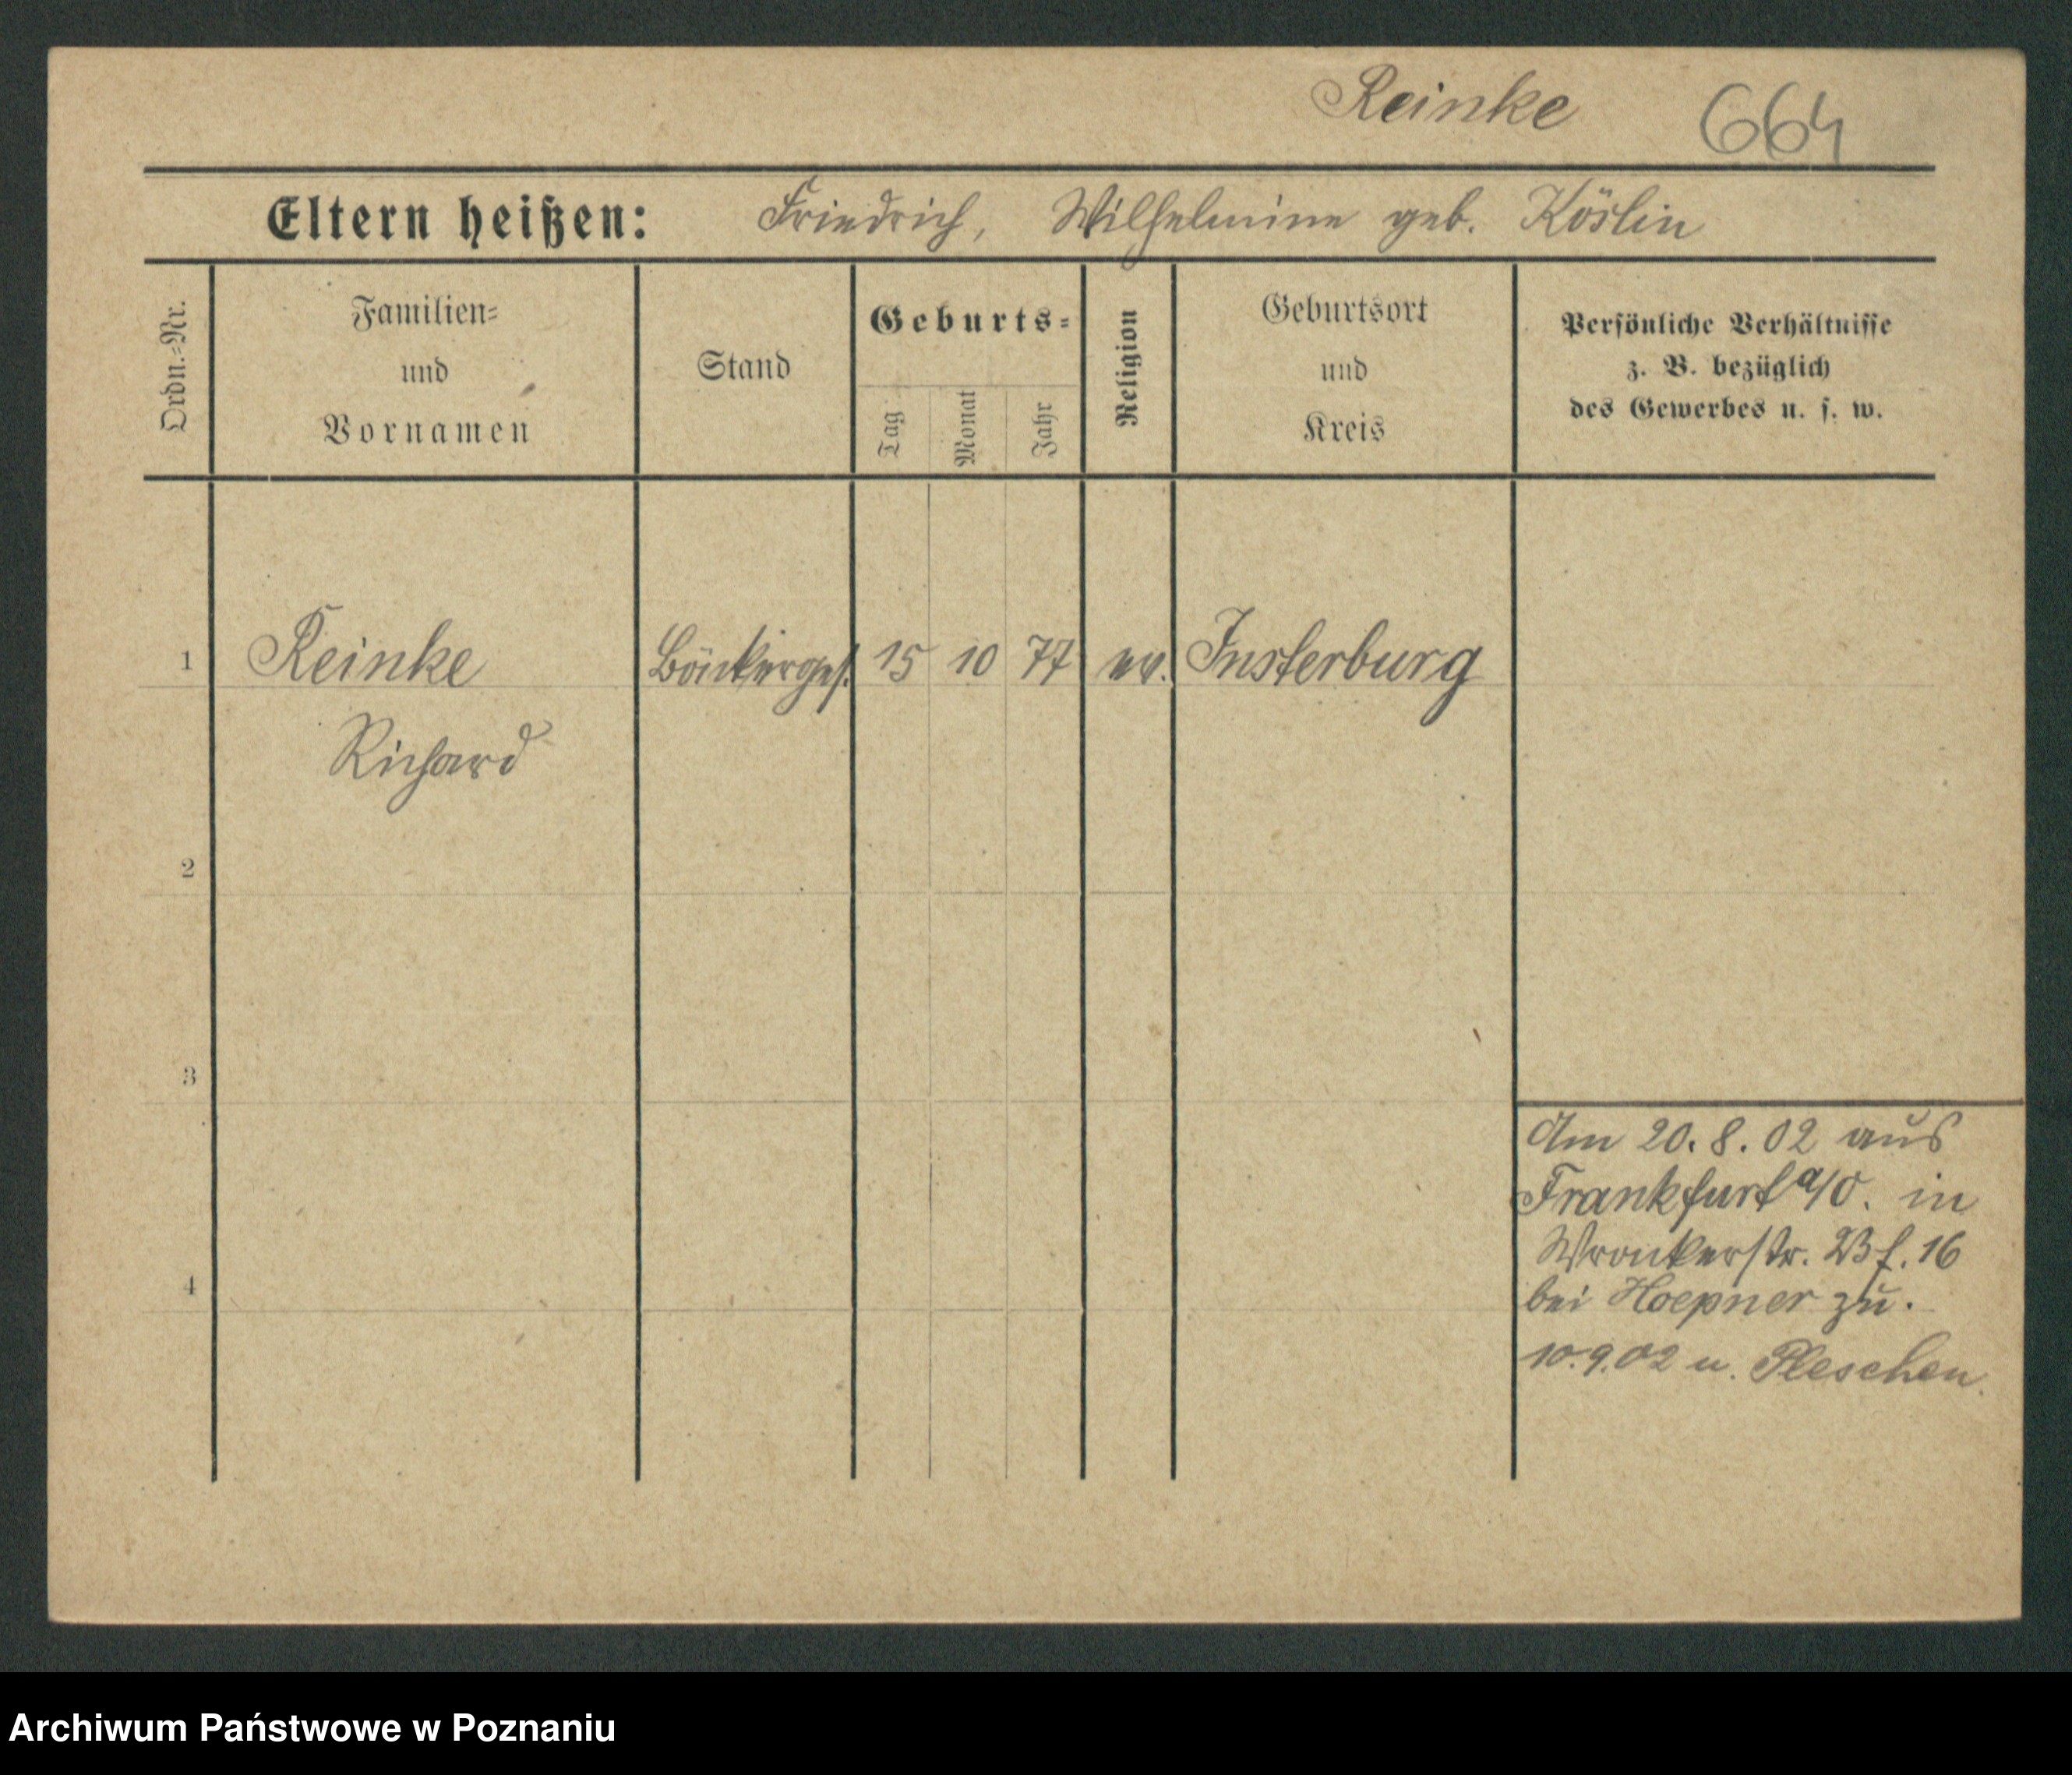 Reinke 664
Eltern heißen: Friedrich, Wilhelmine geb. Köslin
Ordn.-Nr.
Familien-
und
Vornamen
Stand
Geburts-
Tag
Monat
Jahr
Religion
Geburtsort
und
Kreis
Persönliche Verhältnisse
z. B. bezüglich
des Gewerbes u. s. w.
1 Reinke Bäckerges. 15 10 77 ev. Insterburg
Richard
2
3
4
Am 20.8.02 aus
Frankfurt a/O. in
Wronkerstr. 23 f. 16
bei Hoepner zu.
10.9.02 n. Pleschen.
Archiwum Państwowe w Poznaniu